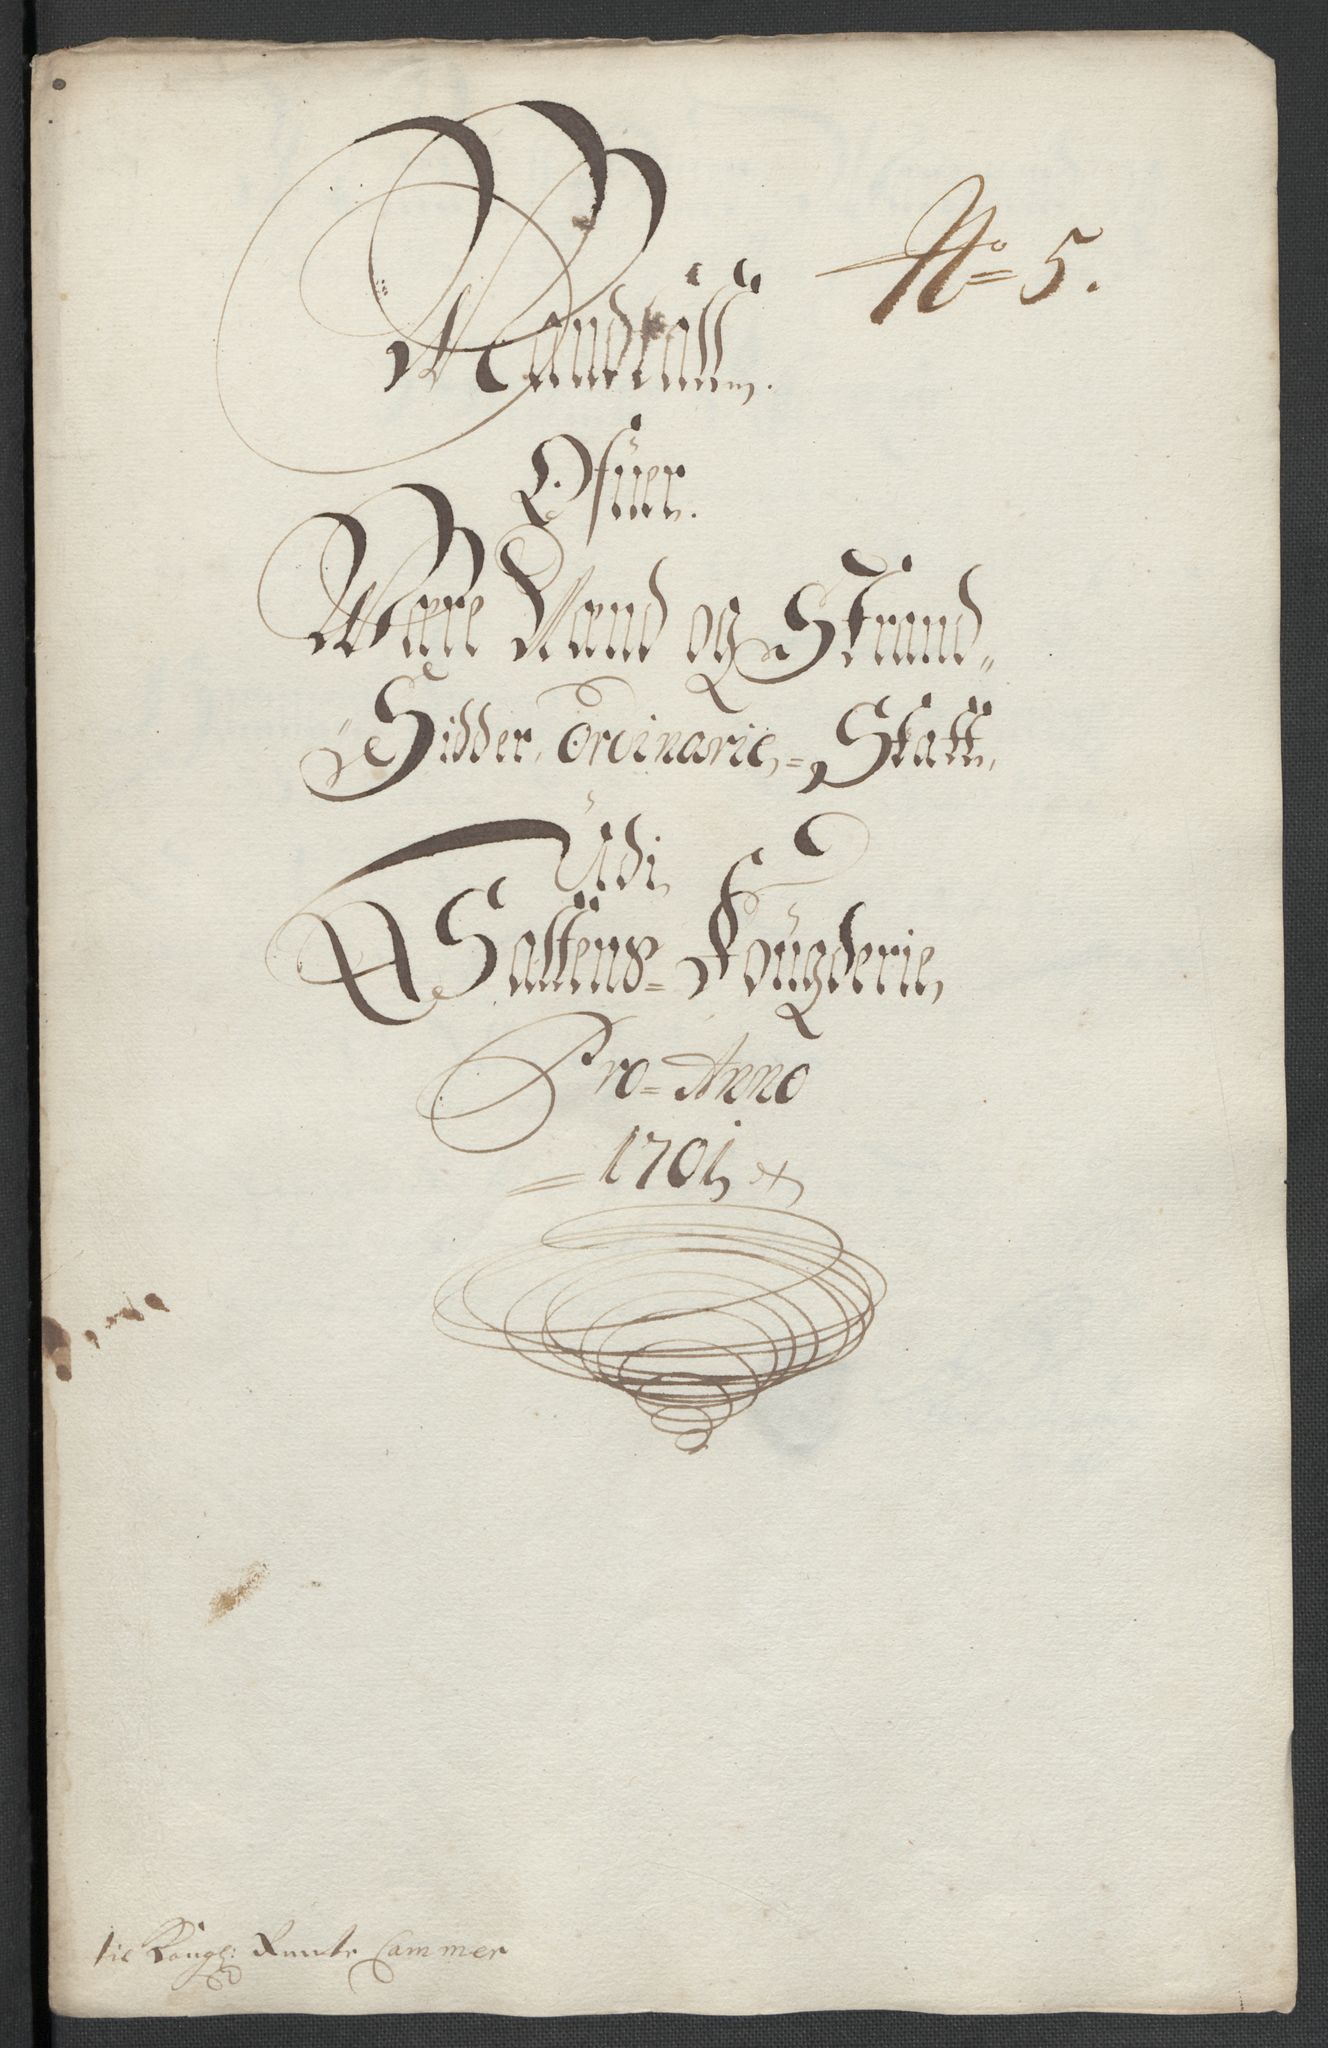 No 5.
Mandtall
Ofuer
Være Mænd og Strand„
„Sidder, Ordinarie,= Skatt,
Udi,
Saltens= Fougderie,
Pro= Anno
= 1701,
til Kongl: Rente Cammer